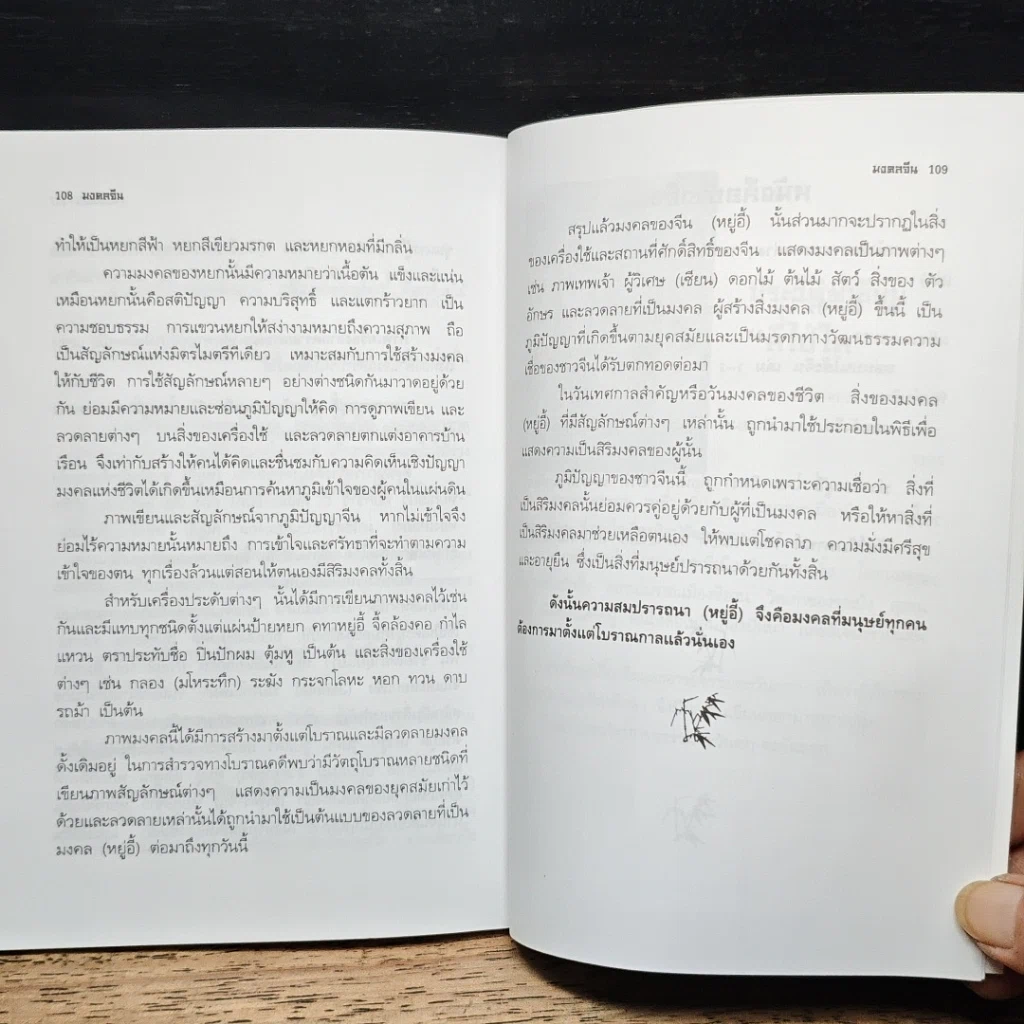 108 มงคลจีน
ทำให้เป็นหยกสีฟ้า หยกสีเขียวมรกต และหยกหอมที่มีกลิ่น
ความมงคลของหยกนั้นมีความหมายว่าเนื้อตัน แข็งและแน่น
เหมือนหยกนั้นคือสติปัญญา ความบริสุทธิ์ และแตกร้าวยาก เป็น
ความชอบธรรม การแขวนหยกให้สง่างามหมายถึงความสุภาพ ถือ
เป็นสัญลักษณ์แห่งมิตรไมตรีทีเดียว เหมาะสมกับการใช้สร้างมงคล
ให้กับชีวิต การใช้สัญลักษณ์หลายๆ อย่างต่างชนิดกันมาวาดอยู่ด้วย
กัน ย่อมมีความหมายและซ่อนภูมิปัญญาให้คิด การดูภาพเขียน และ
ลวดลายต่างๆ บนสิ่งของเครื่องใช้ และลวดลายตกแต่งอาคารบ้าน
เรือน จึงเท่ากับสร้างให้คนได้คิดและชื่นชมกับความคิดเห็นเชิงปัญญา
มงคลแห่งชีวิตได้เกิดขึ้นเหมือนการค้นหาภูมิเข้าใจของผู้คนในแผ่นดิน
ภาพเขียนและสัญลักษณ์จากภูมิปัญญาจีน หากไม่เข้าใจจึง
ย่อมไร้ความหมายนั้นหมายถึง การเข้าใจและศรัทธาที่จะทำตามความ
เข้าใจของตน ทุกเรื่องล้วนแต่สอนให้ตนเองมีสิริมงคลทั้งสิ้น
สำหรับเครื่องประดับต่างๆ นั้นได้มีการเขียนภาพมงคลไว้เช่น
กันและมีแทบทุกชนิดตั้งแต่แผ่นป้ายหยก คทาหยู่อี้ จี้คล้องคอ กำไล
แหวน ตราประทับชื่อ ปิ่นปักผม ตุ้มหู เป็นต้น และสิ่งของเครื่องใช้
ต่างๆ เช่น กลอง (มโหระทึก) ระฆัง กระจกโลหะ หอก ทวน ดาบ
รถม้า เป็นต้น
ภาพมงคลนี้ได้มีการสร้างมาตั้งแต่โบราณและมีลวดลายมงคล
ดั้งเดิมอยู่ ในการสำรวจทางโบราณคดีพบว่ามีวัตถุโบราณหลายชนิดที่
เขียนภาพสัญลักษณ์ต่างๆ แสดงความเป็นมงคลของยุคสมัยเก่าไว้
ด้วยและลวดลายเหล่านั้นได้ถูกนำมาใช้เป็นต้นแบบของลวดลายที่เป็น
มงคล (หยู่อี้) ต่อมาถึงทุกวันนี้
มงคลจีน 109
สรุปแล้วมงคลของจีน (หยู่อี้) นั้นส่วนมากจะปรากฏในสิ่ง
ของเครื่องใช้และสถานที่ศักดิ์สิทธิ์ของจีน แสดงมงคลเป็นภาพต่างๆ
เช่น ภาพเทพเจ้า ผู้วิเศษ (เซียน) ดอกไม้ ต้นไม้ สัตว์ สิ่งของ ตัว
อักษร และลวดลายที่เป็นมงคล ผู้สร้างสิ่งมงคล (หยู่อี้) ขึ้นนี้ เป็น
ภูมิปัญญาที่เกิดขึ้นตามยุคสมัยและเป็นมรดกทางวัฒนธรรมความ
เชื่อของชาวจีนได้รับตกทอดต่อมา
ในวันเทศกาลสำคัญหรือวันมงคลของชีวิต สิ่งของมงคล
(หยู่อี้) ที่มีสัญลักษณ์ต่างๆ เหล่านั้น ถูกนำมาใช้ประกอบในพิธีเพื่อ
แสดงความเป็นสิริมงคลของผู้นั้น
ภูมิปัญญาของชาวจีนนี้ ถูกกำหนดเพราะความเชื่อว่า สิ่งที่
เป็นสิริมงคลนั้นย่อมควรคู่อยู่ด้วยกับผู้ที่เป็นมงคล หรือให้หาสิ่งที่
เป็นสิริมงคลมาช่วยเหลือตนเอง ให้พบแต่โชคลาภ ความมั่งมีศรีสุข
และอายุยืน ซึ่งเป็นสิ่งที่มนุษย์ปรารถนาด้วยกันทั้งสิ้น
ดังนั้นความสมปรารถนา (หยู่อี้) จึงคือมงคลที่มนุษย์ทุกคน
ต้องการมาตั้งแต่โบราณกาลแล้วนั่นเอง